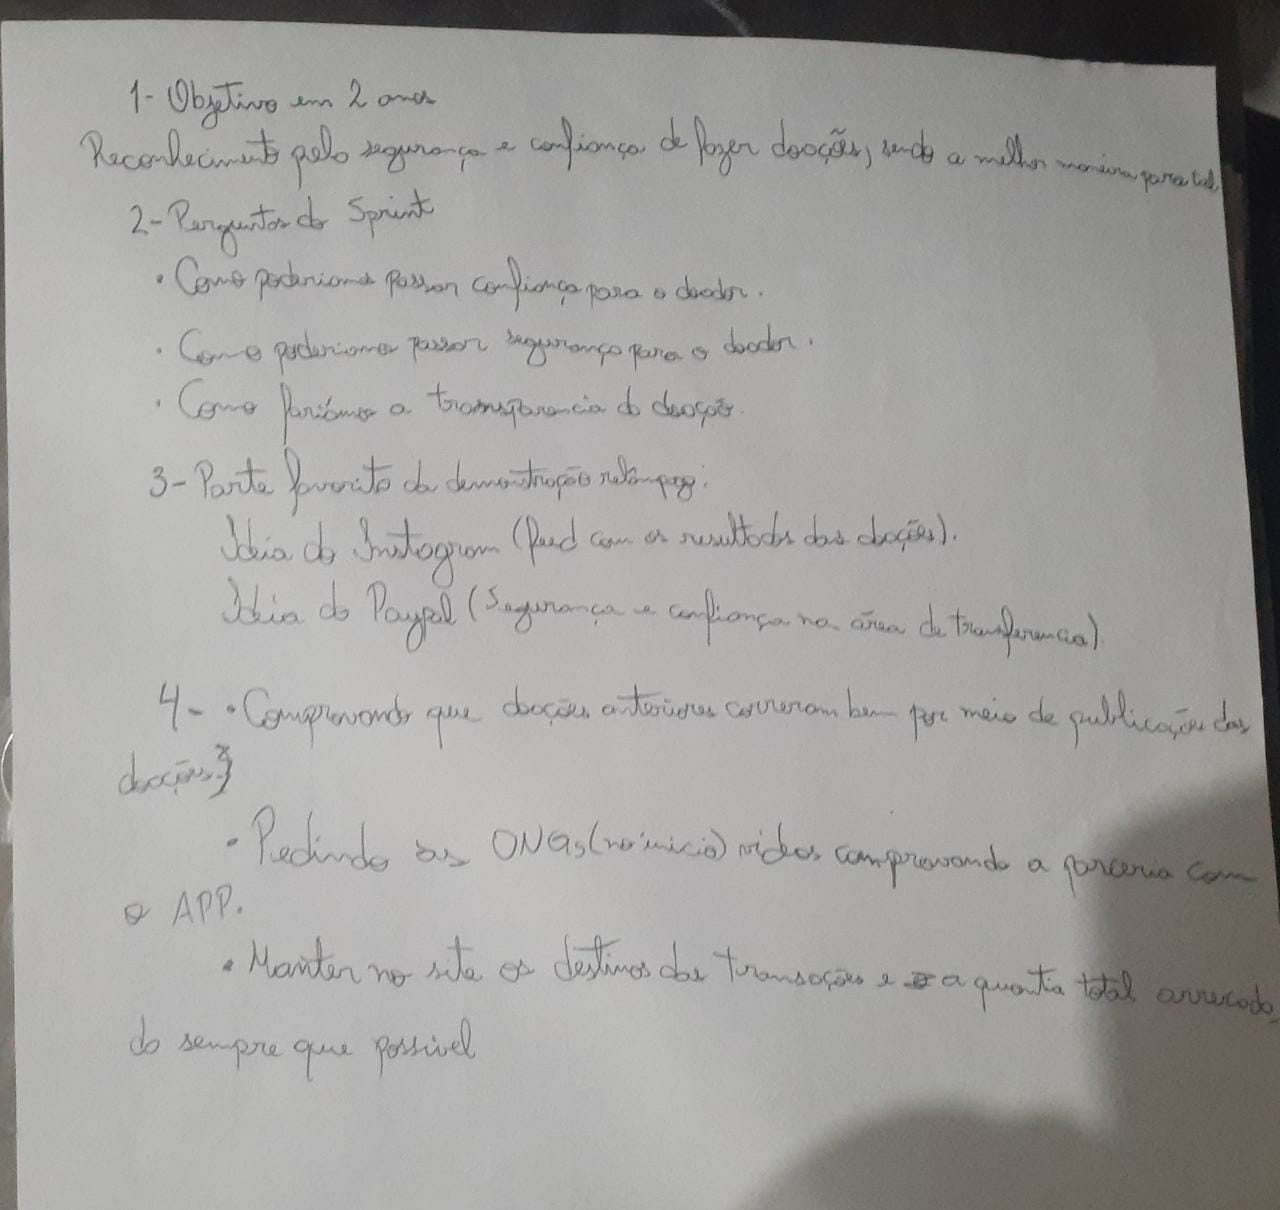 1- Objetivo em 2 anos
Reconhecimento pela segurança e confiança de fazer doações, sendo a melhor maneira para tal
2- Perguntas do Sprint
• Como poderiamos passar confiança para o doador.
• Como poderiamos passar segurança para o doador.
• Como fariamos a transparencia da doação.
3- Parte favorita da demonstração relâmpago:
Ideia do Instagram (feed com os resultados das doações).
Ideia do Paypal (Segurança e confiança na área de transferencia).
4- • Comprovando que doações anteriores correram bem por meio de publicações das
doações.
• Pedindo as ONGs (no inicio) videos comprovando a parceria com
o APP.
• Manter no site os destinos das transações e a quantia total arrecada
do sempre que possivel